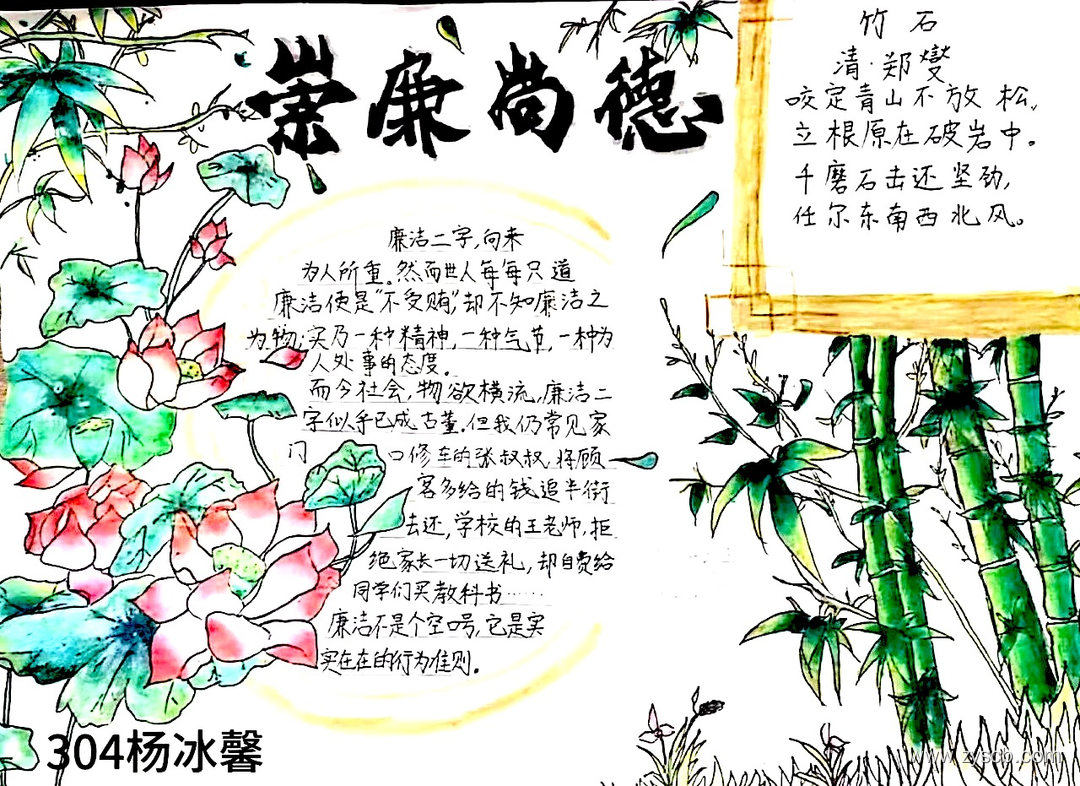 崇廉尚德
竹石
清·郑燮
咬定青山不放松,
立根原在破岩中。
千磨石击还坚劲,
任尔东南西北风。
廉洁二字,向来
为人所重。然而世人每每只道
廉洁便是“不受贿”,却不知廉洁之
为物;实乃一种精神,一种气节,一种为
人处事的态度。
而今社会,物欲横流,廉洁二
字似乎已成古董。但我仍常见家
门口修车的张叔叔,将顾
客多给的钱追半街
去还,学校的王老师,拒
绝家长一切送礼,却自费给
同学们买教科书……
廉洁不是个空口号,它是实
实在在的行为准则。
304杨冰馨
www.zyscb.com